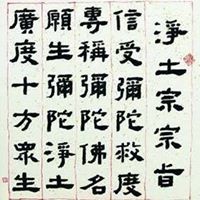 淨土宗宗旨
信受彌陀救度
專稱彌陀佛名
願生彌陀淨土
廣度十方眾生